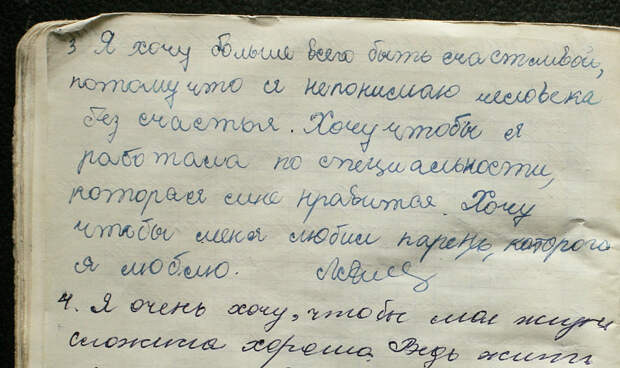 3 Я хочу больше всего быть счастливой,
потому что я непонимаю человека
без счастья. Хочу чтобы я
работала по специальности,
которая мне нравится. Хочу
чтобы меня любил парень, которого
я люблю.
4. Я очень хочу, чтобы моя жизнь
сложила хорошо. Ведь жизнь